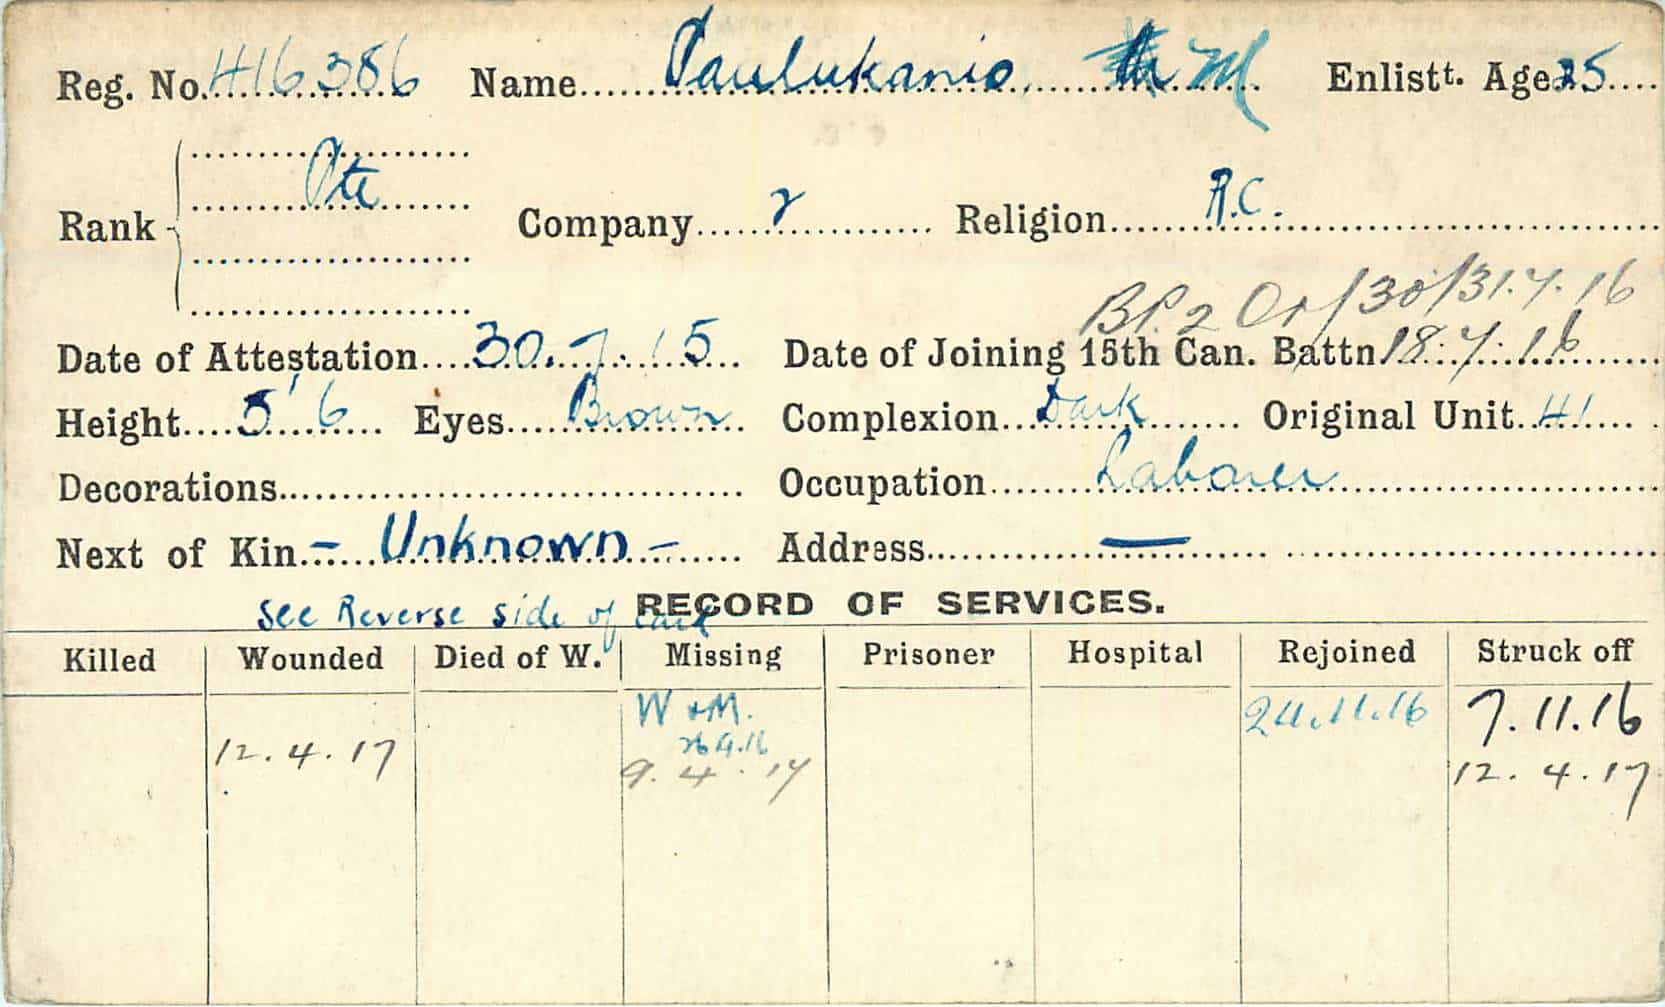 Reg. No. 416386 Name Paulukanis M Enlistt. Age 25
Rank Pte Company 2 Religion R.C.
BP. 2 Or/30/31.7.16
Date of Attestation 30.7.15 Date of Joining 15th Can. Battn 18.7.16
Height 5'6 Eyes Brown Complexion Dark Original Unit 41
Decorations Occupation Laborer
Next of Kin - Unknown - Address —
See Reverse side of card RECORD OF SERVICES.
Killed Wounded Died of W. Missing Prisoner Hospital Rejoined Struck off
W & M. 24.11.16 7.11.16
26.9.16
12.4.17 9.4.17 12.4.17